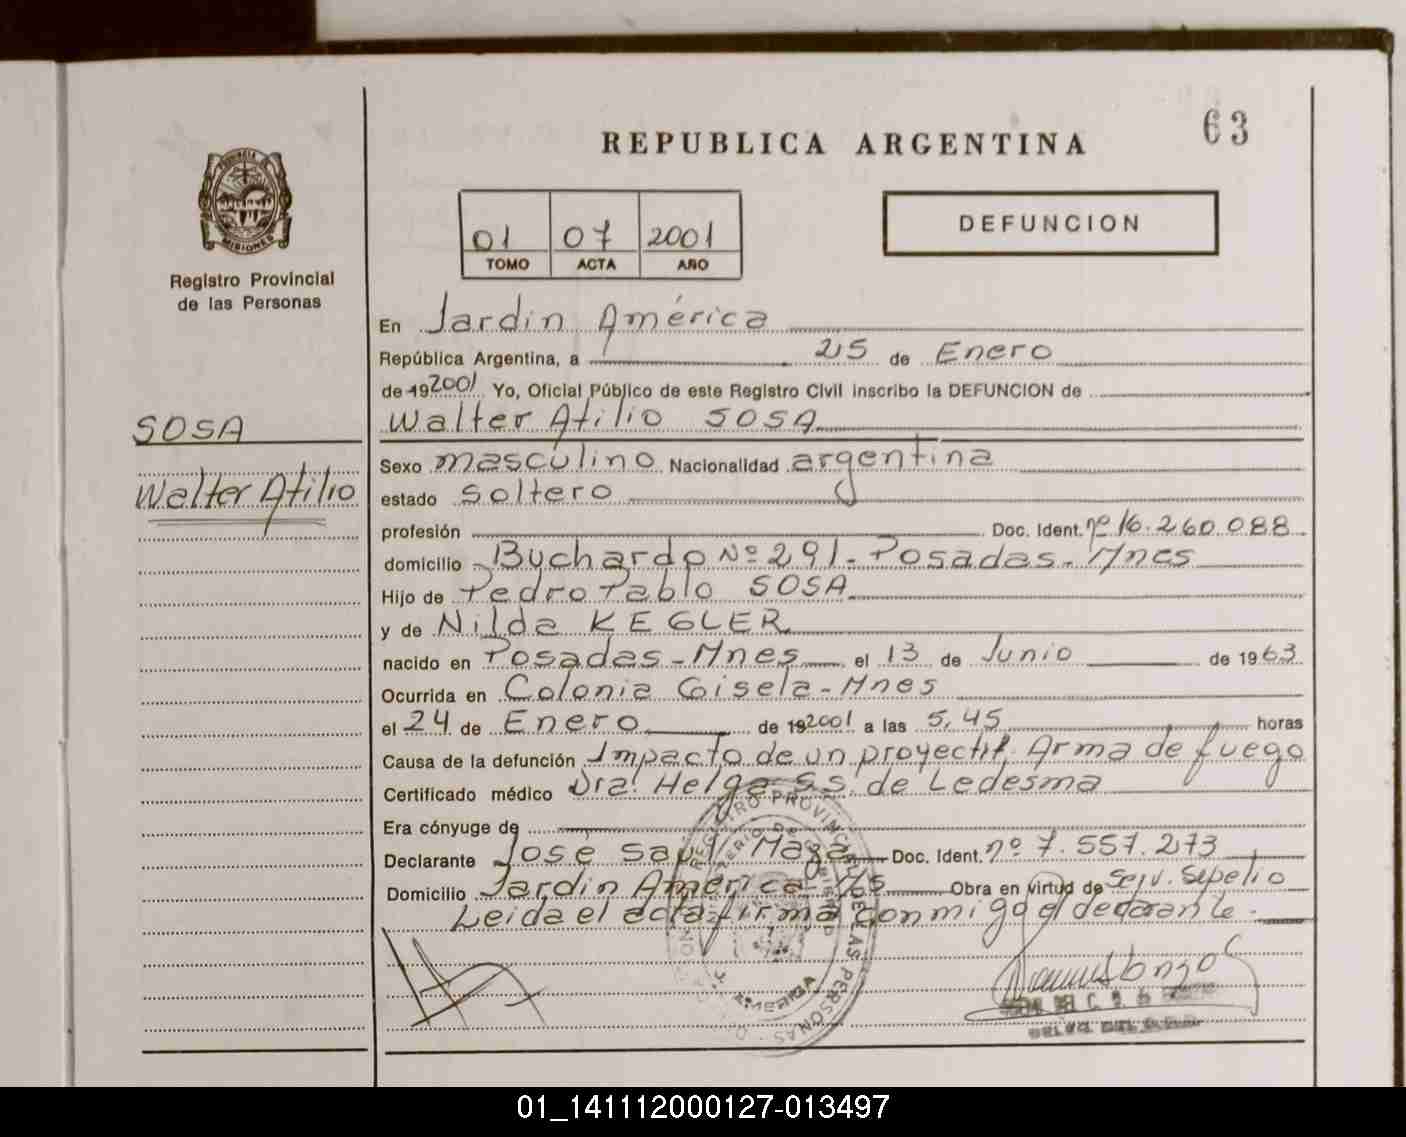 63
REPUBLICA ARGENTINA
PROVINCIA DE
MISIONES
Registro Provincial
de las Personas
01 07 2001
TOMO ACTA AÑO
DEFUNCION
En Jardin América
República Argentina, a 25 de Enero
de 192001 Yo, Oficial Público de este Registro Civil inscribo la DEFUNCION de
Walter Atilio SOSA
SOSA
Walter Atilio
Sexo masculino Nacionalidad argentina
estado soltero
profesión Doc. Ident. nº 16.260.088
domicilio Buchardo Nº 291 - Posadas - Mnes
Hijo de Pedro Pablo SOSA
y de Nilda KEGLER
nacido en Posadas - Mnes el 13 de Junio de 1963
Ocurrida en Colonia Gisela - Mnes
el 24 de Enero de 192001 a las 5,45 horas
Causa de la defunción Impacto de un proyectil. Arma de fuego
Certificado médico Dra. Helga S.S. de Ledesma
Era cónyuge de
Declarante José Saúl Maza Doc. Ident. nº 7.557.273
Domicilio Jardin América Obra en virtud de Serv. Sepelio
Leida el acta firma conmigo el declarante -
REGISTRO PROVINCIAL DE LAS PERSONAS
MINISTERIO DE GOBIERNO
J. AMERICA
01_141112000127-013497